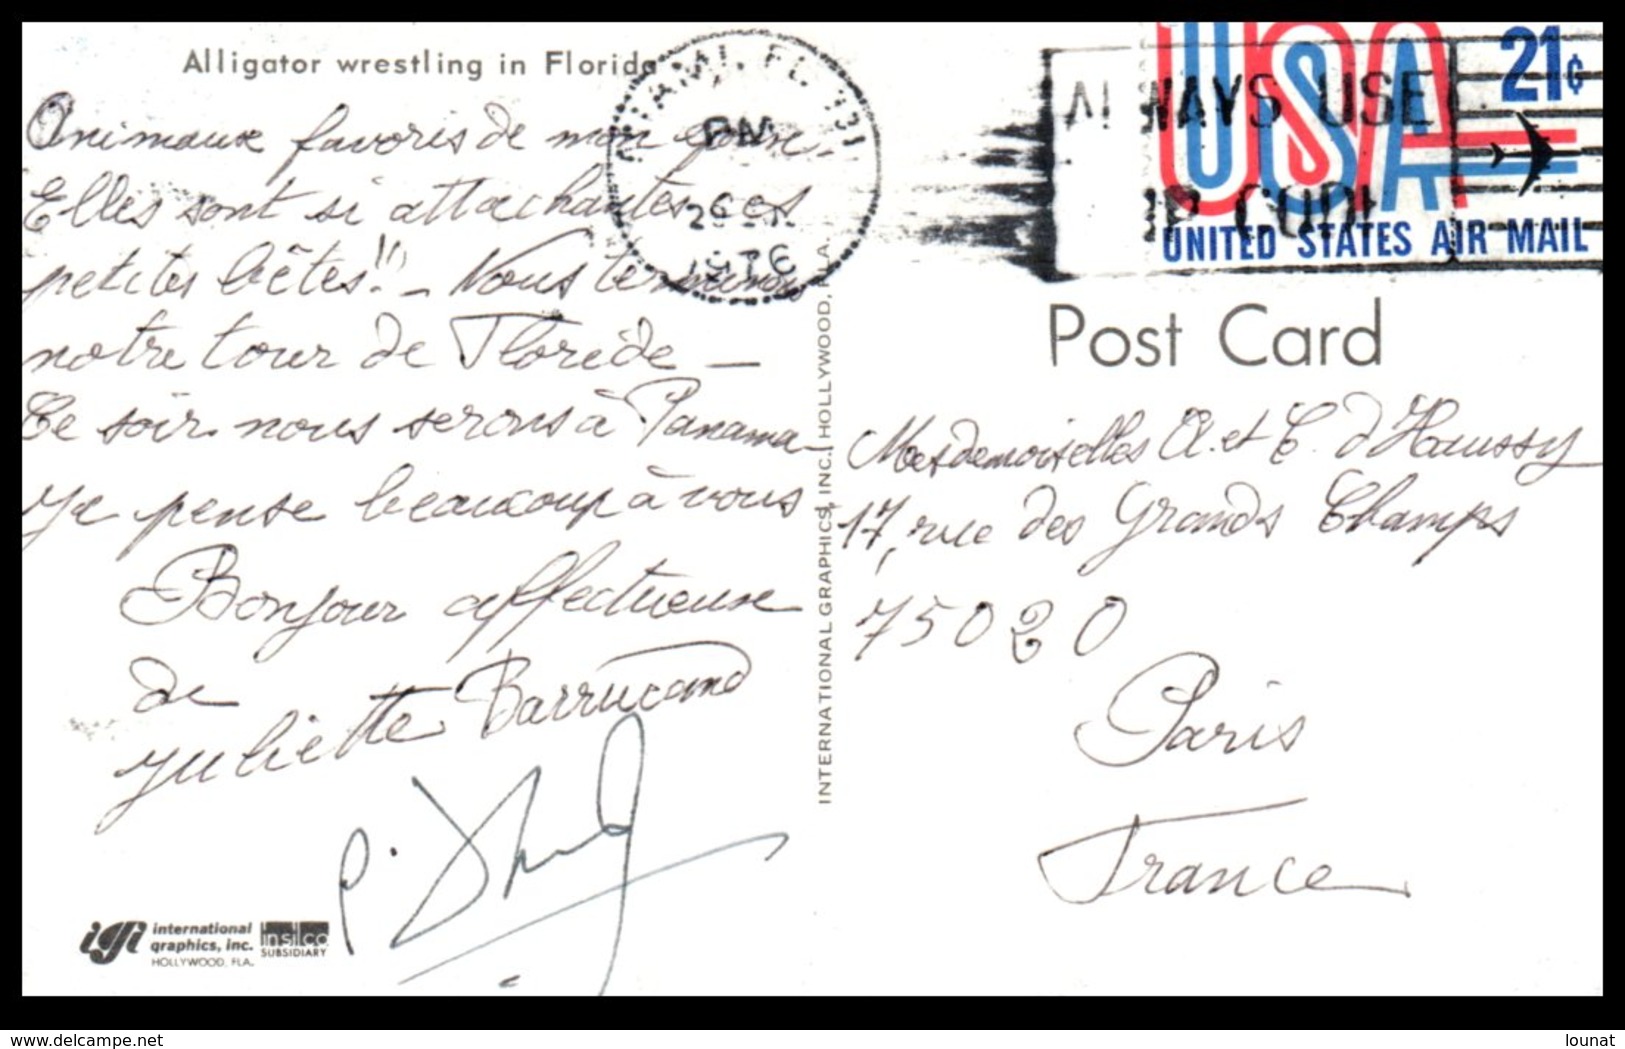 Alligator wrestling in Florida
Animaux favoris de mon époux.
Elles sont si attachantes ces
petites bêtes!! - Nous terminons
notre tour de Floride -
Ce soir nous serons à Panama -
Je pense beaucoup à vous
Bonjour affectueuse
de
Juliette Barrucand
MIAMI, FL 331
PM
26
1976
ALWAYS USE
ZIP CODE
USA 21¢
UNITED STATES AIR MAIL
Post Card
Mesdemoiselles A. et C. d'Haussy
17, rue des Grands Champs
75020
Paris
France
INTERNATIONAL GRAPHICS, INC. HOLLYWOOD, FLA.
igi international
graphics, inc.
HOLLYWOOD, FLA.
insilco
SUBSIDIARY
www.delcampe.net
lounat